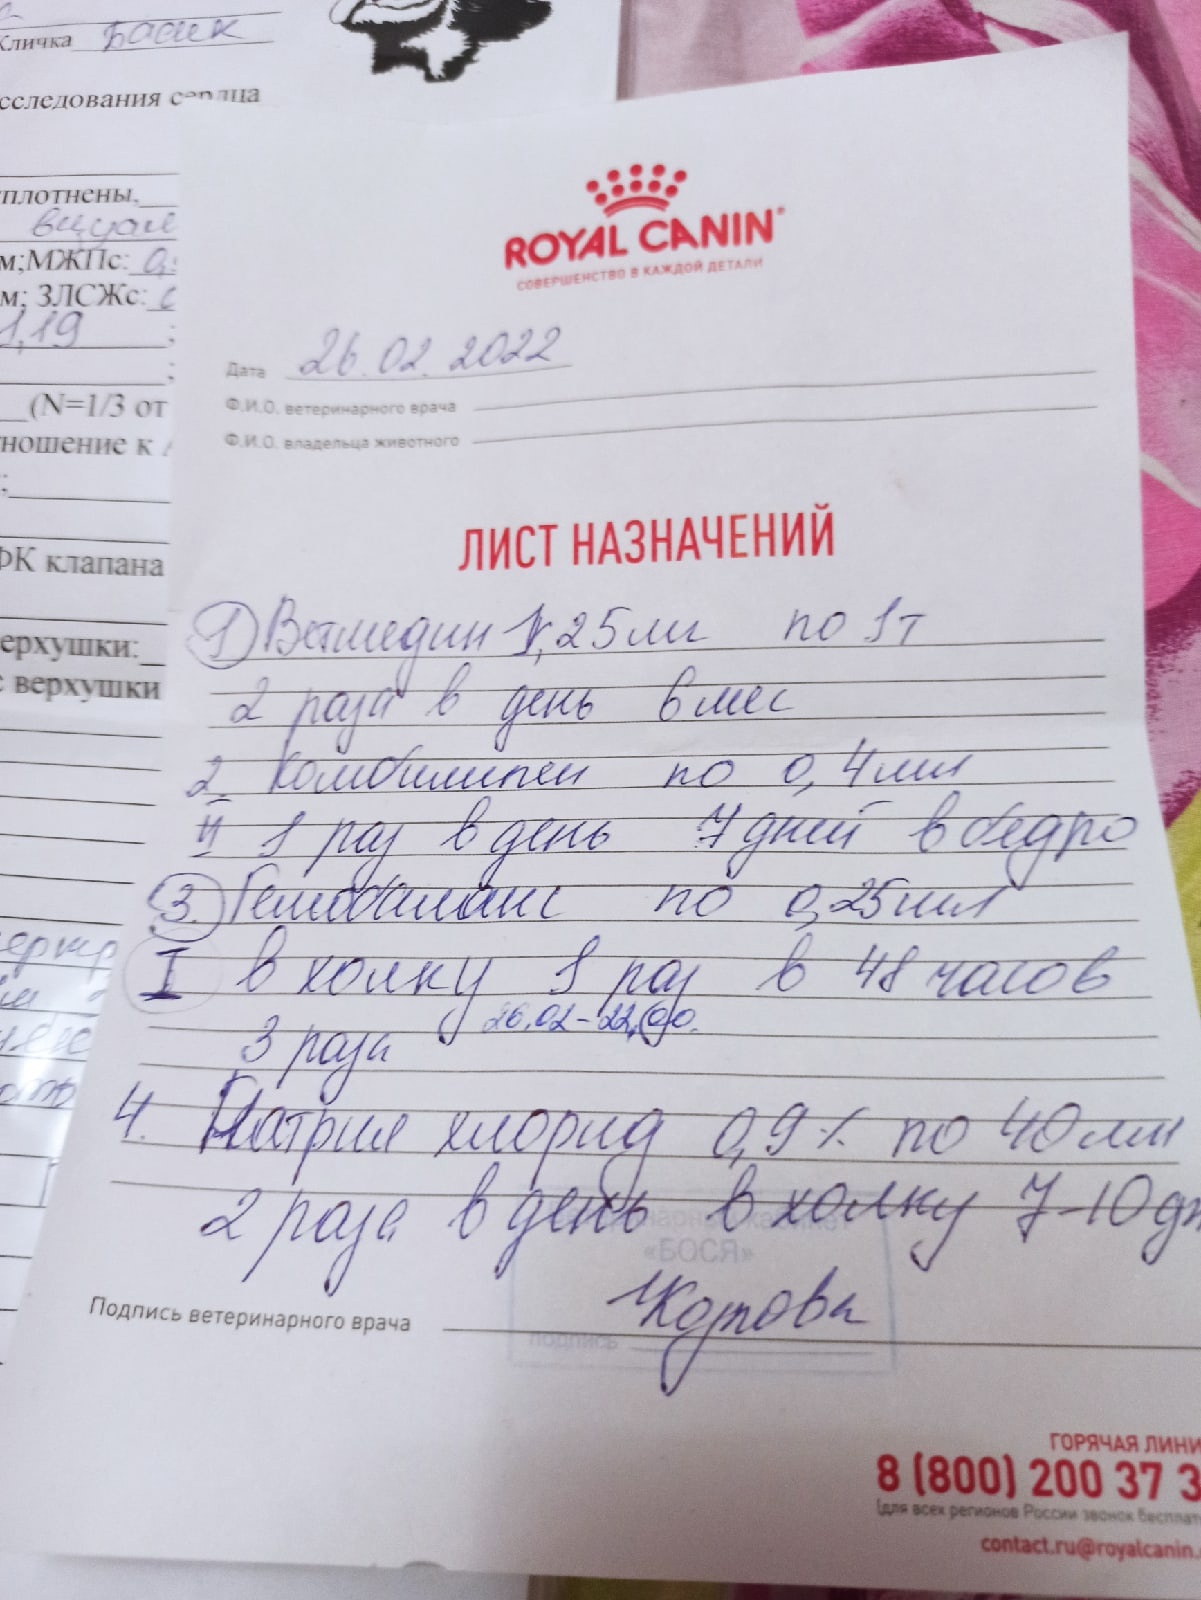 Кличка Басик
сследования сердца
плотнены,
м;МЖПс: 0,
м; ЗЛСЖс:
1,19 ;
;
(N=1/3 от
ношение к
;
ФК клапана
ерхушки:
с верхушки
ROYAL CANIN
СОВЕРШЕНСТВО В КАЖДОЙ ДЕТАЛИ
Дата 26.02.2022
Ф.И.О. ветеринарного врача
Ф.И.О. владельца животного
ЛИСТ НАЗНАЧЕНИЙ
1) Ветмедин 1,25мг по 1т
2 раза в день 6 мес
2. Комбилипен по 0,4 мл
II 1 раз в день 7 дней в бедро
3. Гемобаланс по 0,25мл
I в холку 1 раз в 48 часов
3 раза 26.02-22.00.
4. Натрия хлорид 0,9% по 40 мл
2 раза в день в холку 7-10 дн
«БОСЯ»
Подпись ветеринарного врача Котова
подпись
ГОРЯЧАЯ ЛИНИ
8 (800) 200 37 3
(для всех регионов России звонок бесплат
contact.ru@royalcanin.